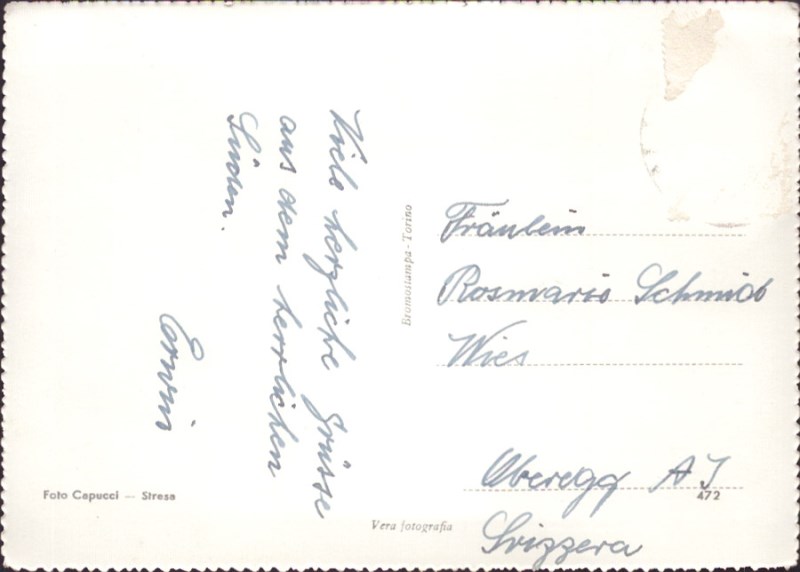 Viele herzliche Grüsse
aus dem herrlichen
Süden.
Erwin
Bromostampa - Torino
Fräulein
Rosmarie Schmid
Wies
Oberegg A I
472
Svizzera
Foto Capucci — Stresa
Vera fotografia